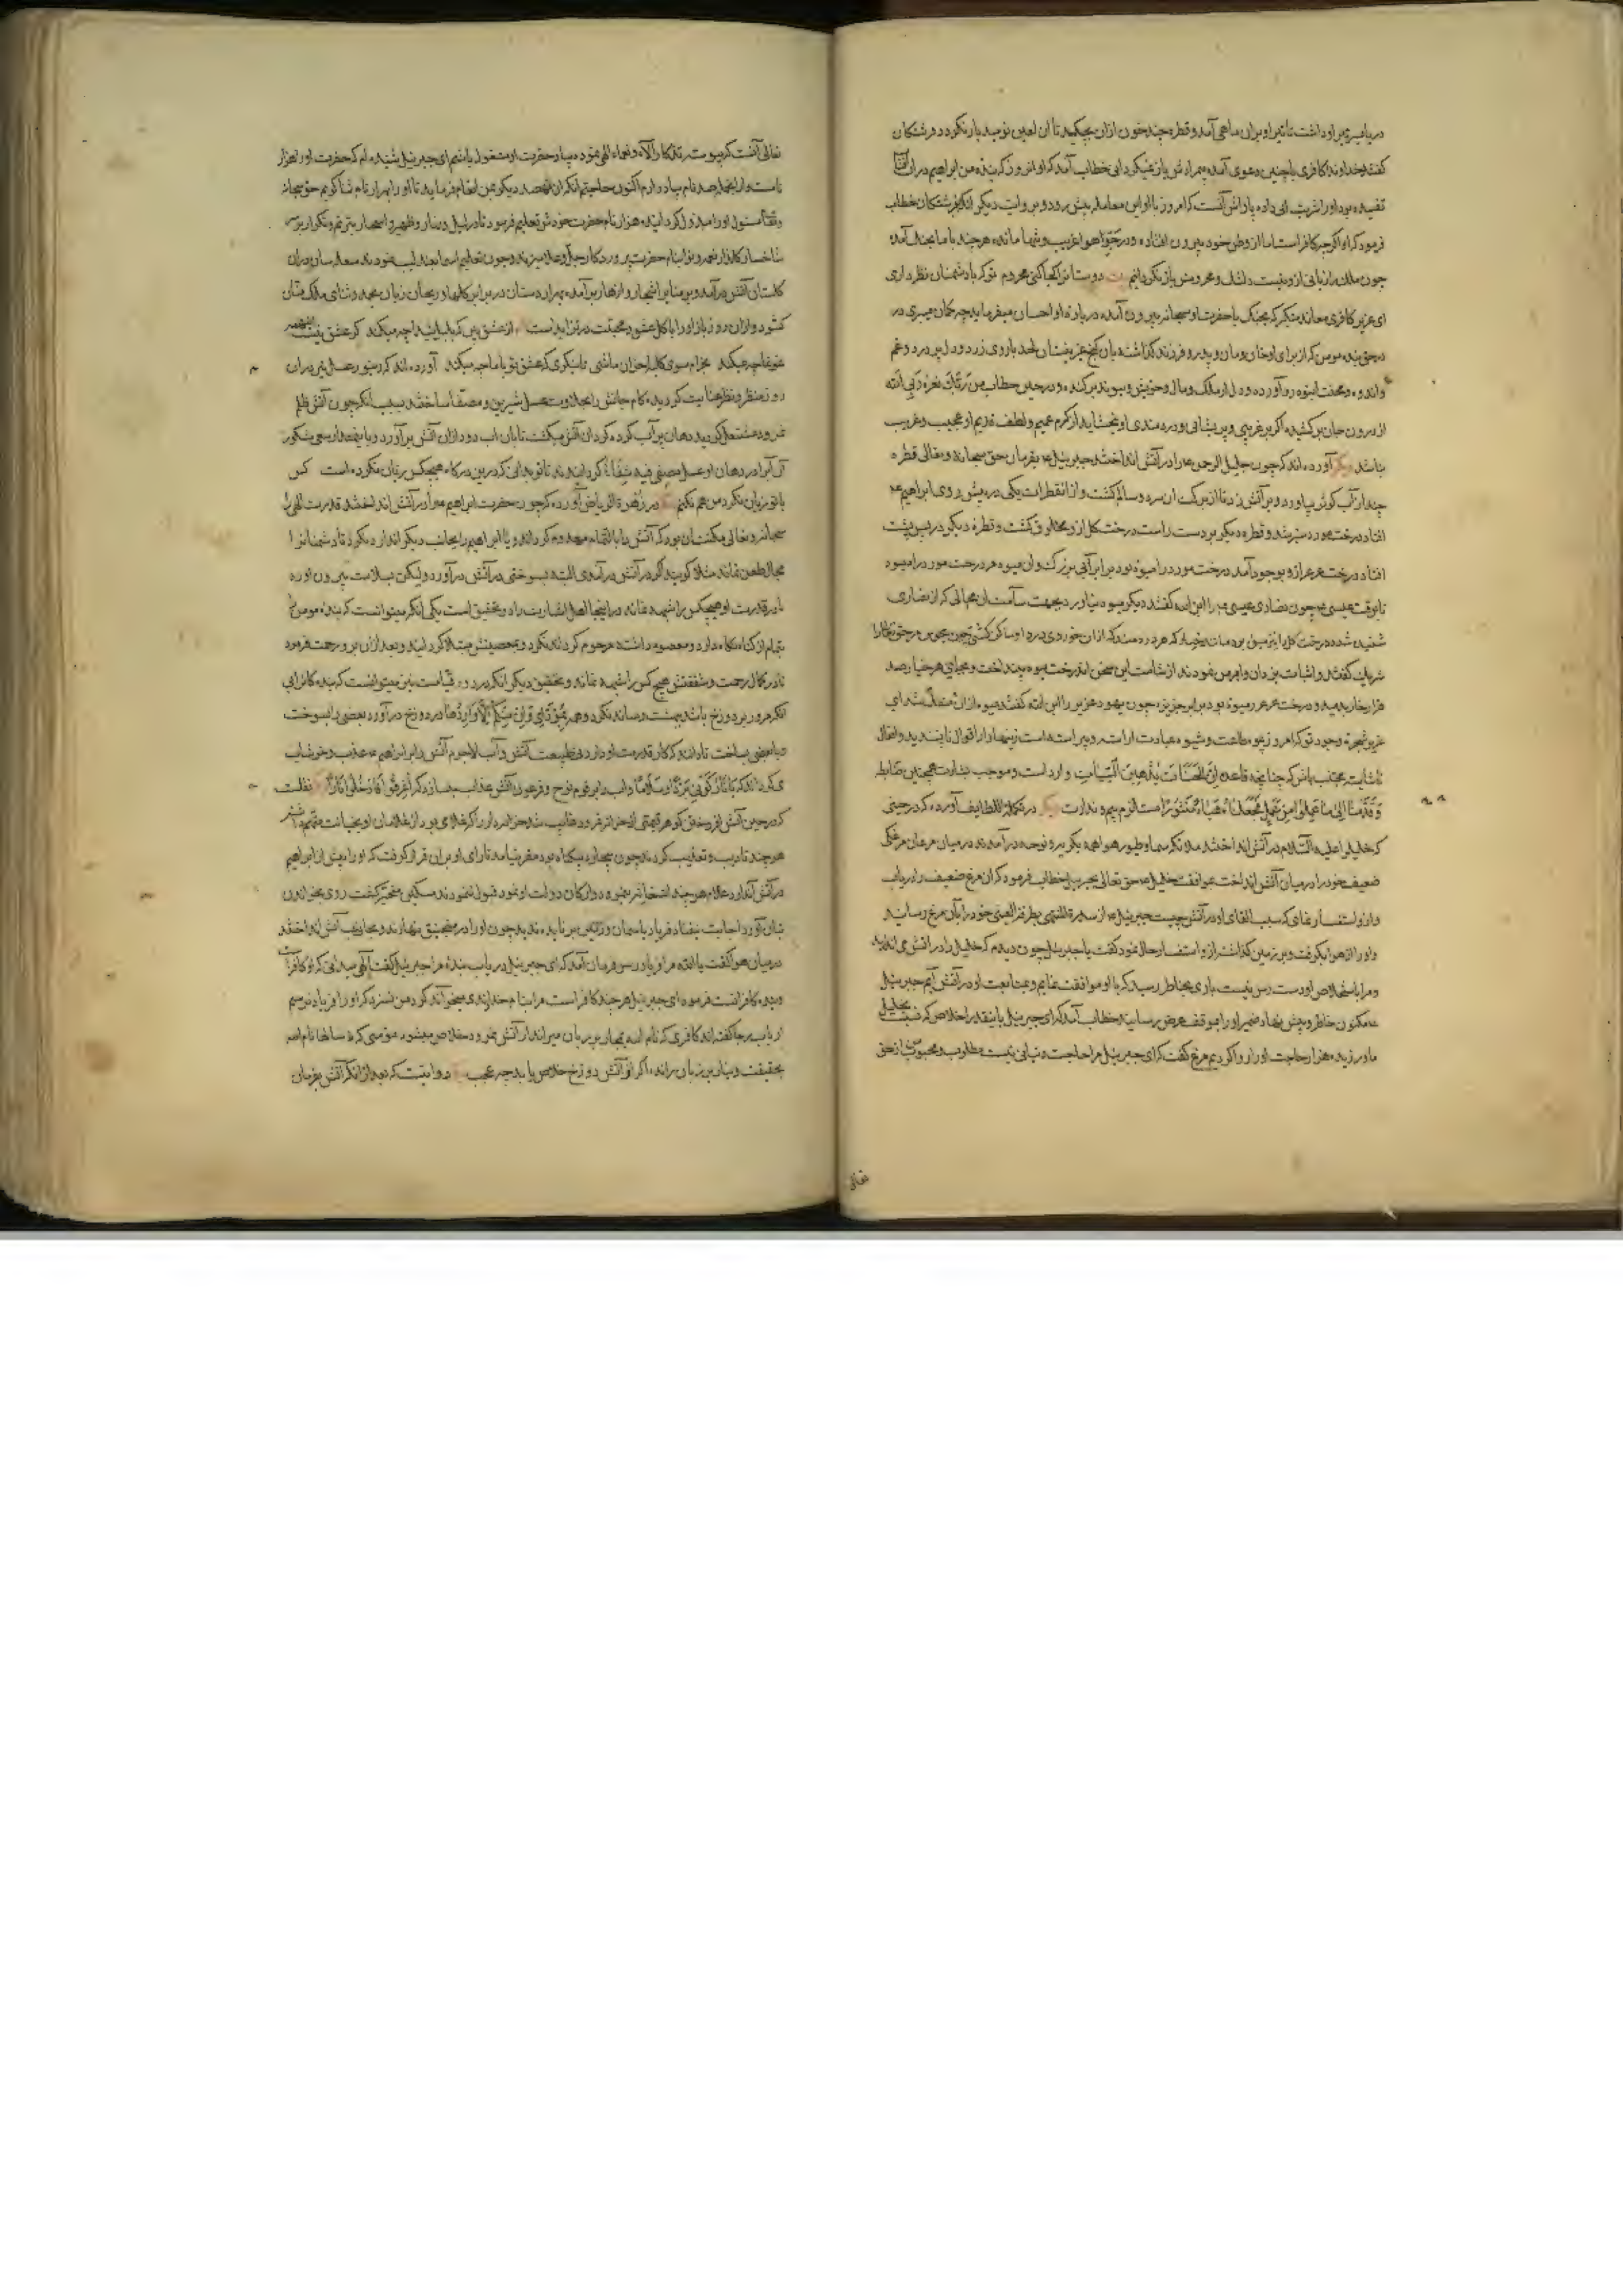 در یا سپر تیر او داشت تا تیر او بران ماهی آمد و قطره چند خون ازان بچکید تا آن لعین نومید باز نگردد فرشتکان
کفتند خداوندا کافری با چنین دعوی آمده بمرادش باز میکردانی خطاب آمد که او آن روز که بنده من ابراهیم در آن
تفیده بود او را شربت آبی داده پاداش آنست که امروز با او این معامله پیش رود و بروایت دیکر آنکه فرشتکان خطاب
فرمود که او اکرچه کافر است اما از وطن خود بیرون افتاده و در هوا غریب و تنها مانده هرچند با ما بجنک آمده
چون ملک را زیانی ازو نیست دلتنک و محرومش باز نکردانیم دوستان را کجا کنی محروم تو که با دشمنان نظر داری
ای عزیز کافری معاند متکبر که بجنک با حضرت او سبحانه بیرون آمده درباره او احسان میفرماید چه کمان میبری در
حق بنده مومن که از برای او خان و مان و پدر و فرزند کذاشته بآن کنج لحد با روی زرد و دل پر درد و غم
و اندوه و محنت انبوه رو آورده و دل از ملک و مال و خویش و پیوند برکنده و در حین خطاب من ربک نعره ربی الله
از درون جان برکشیده اکر بر غریبی و پریشانی و دردمندی او ببخشاید از کرم عمیم و لطف قدیم او عجیب و غریب
نباشد دیکر آورده اند که چون خلیل الرحمن را در آتش انداختند جبرئیل بفرمان حق سبحانه و تعالی قطره
چند از آب کوثر بیاورد و بر آتش زد تا از برکت آن سرد و سالم کشت و از آن قطرات یکی در پیش روی ابراهیم
افتاد درخت مورد سبز شد و قطره دیکر بر دست راست درخت کل ازو مخلوق کشت و قطره دیکر در پس پشت
افتاد درخت عرعر ازو بوجود آمد درخت مورد را میوه بود برابر آبی بزرک و آن میوه هر درخت مورد را میبود
تا بوقت عیسی چون نصاری عیسی را ابن الله کفتند دیکر میوه نیاورد بجهت سآمت آن مجالی که از نصاری
شنیده شده درخت کل را نیز
شریک کفتند و اثبات یزدان و اهرمن نمودند از شآمت این سخن آن درخت میوه بینداخت و بجای هر خیار صد
هزار خار بدمید و درخت عرعر را میوه بود برابر خربزه چون یهود عزیر را ابن الله کفتند میوه ازان منقطع شد ای
عزیز شجره وجود تو که امروز بمیوه طاعت و شیوه عبادت آراسته و پیراسته است زنهار از اقوال ناپسندیده و افعال
ناشایسته مجتنب باش که چنانچه قاعده ان الحسنات یذهبن السیآت وارد است و موجب بشارت همچنین ضابطه
وقدمنا الی ما عملوا من عمل فجعلناه هباء منثورا است لازم بیم و ندارت دیکر در نکت اللطایف آورده که در حینی
که خلیل را علیه السلام در آتش انداختند ملائکه سما و طیور هوا همه بکریه و نوحه درآمدند در میان مرغان مرغکی
ضعیف خود را در میان آتش انداخت بموافقت خلیل حق تعالی بجبرئیل خطاب فرمود که آن مرغ ضعیف را دریاب
و ازو استفسار نمای که سبب القای او در آتش چیست جبرئیل از سدرة المنتهی بطرفة العینی خود را بآن مرغ رسانید
و او را از هوا بکرفت و بر زمین کذاشت ازو استفسار حال نمود کفت یا جبرئیل چون دیدم که خلیل را در آتش می اندازند
و مرا باستخلاص او دست رس نیست باری بخاطر رسید که با او موافقت نمایم و بمتابعت او در آتش آیم جبرئیل
مکنون خاطر و پیش نهاد ضمیر او را بموقف عرض رسانید خطاب آمد که ای جبرئیل باین قدر اخلاص که نسبت بخلیل
ما ورزیده هزار حاجت او را روا کردیم مرغ کفت که ای جبرئیل مرا حاجت دنیائی نیست مطلوب و محبوب من از حق
تعالی
تعالی آنست که پیوسته تذکار آلاء و نعماء الهی نموده بیاد حضرت او مشغول باشم ای جبرئیل شنیده ام که حضرت او را هزار
نامست و از انجمله صد نام بیاد دارم اکنون حاجتم آنکه آن نهصد دیکر بمن انعام فرماید تا او را بهزار نام ثنا کویم حق سبحانه
وتعالی مسئول او را مبذول کردانیده هزار نام حضرت خودش تعلیم فرمود تا در لیل و نهار و ظهیره و اسحار بترنم و تکرار بر سر
شاخسار کلزار نغمه و نوا بنام حضرت پروردکار جل و علا میزند و چون تعلیم اسما بعندلیب نمودند
کلستان آتش درآمد و بر منابر اشجار و ازهار برآمده بهزار دستان در برابر کلها و ریحان زبان بحمد و ثنای ملک منان
کشود و ازان روز باز او را با کل عشق و محبت در تزاید است از عشق بین که بلبل شیدا چه میکند کر عشق نیست
غوغا چه میکند بخرام سوی کلبه احزان ما شبی تا بنکری که عشق تو با ما چه میکند آورده اند که زنبور عسل نیز دران
روز منظور نظر عنایت کردیده کام جانش را بحلاوت عسل شیرین و مصفا ساختند بسبب آنکه چون آتش ظلم
نمرود مشتعل کردید دهان پر آب کرده کرد آن آتش میکشت تا بآن آب دود ازان آتش برآورد و باینقدار سعی مشکور
آن آب را در دهان او عسل مصفی فیه شفاء کردانیدند تا تو بدانی که درین درکاه هیچکس زیان نکرده است کس
با تو زیان نکرد من هم نکنم در زهرة الریاض آورده که چون حضرت ابراهیم را در آتش انداختند قدرت الهی
سبحانه و تعالی ممکنت آن بود که آتش را بالتمام معدوم کرداند و یا ابراهیم را بجانب دیکر اندازد تا دشمنان را
مجال طعن نماند مثلا کویند اکر در آتش درآمدی البته بسوختی در آتش درآورد ولیکن بسلامت بیرون آورد
تا در قدرت او هیچکس را شبهه نماند در اینجا اهل اشارت را دو تحقیق است یکی آنکه میتوانست که بنده مومن را
تمام از کناه نکاه دارد و معصوم داشته مرحوم کرداند نکرد و بمعصیتش مبتلا کردانید و بعد ازان برو رحمت فرمود
تا در کمال رحمت و شفقتش هیچ کس را شبهه نماند و تحقیق دیکر آنکه در روز قیامت نیز میتوانست که بنده کان را بی
آنکه مرور بر دوزخ باشد ببهشت رساند نکرد و همه را بمؤدای وان منکم الا واردها در دوزخ درآورد بعضی را بسوخت
و با بعضی بساخت تا دانند که کار قدرت او دارد نی طبیعت آتش و آب لاجرم آتش را بر ابراهیم عذب و خوشاب
میکرداند که یا نار کونی بردا وسلاما و آب را بر قوم نوح و فرعون آتش عذاب میسازد که اغرقوا فادخلوا نارا نقلست
که در حین آتش افروختن کوهر قیمتی از خزانه نمرود غایب شد خزانه دار را که غلامی بود از غلامان او بخیانت متهم
هر چند تادیب و تعذیب کردند چون بیچاره بیکناه بود مقر نیامد تا رای او بران قرار کرفت که او را پیش از ابراهیم
در آتش اندازد غلام هر چند استغاثه نمود و از ارکان دولت او نمود قبول ننمودند مسکین متحیر کشت روی بخزاین
بتان آورد اجابت نیفتاد فریاد باسمان و زمین بر نیامده ندید چون او را در منجنیق نهادند و بجانب آتش انداختند
در میان هوا کفت یا الله مرا فریاد رس فرمان آمد که ای جبرئیل دریاب بنده مرا جبرئیل کفت الهی میدانی که او کافر
و بنده کافرانست فرمود ای جبرئیل هر چند کافر است مرا بنام خداوندی میخواند کرد من نسزد که او را فریاد نرسم
ارباب رجا کفته اند کافری که نام الله بمجاز بر زبان میراند از آتش نمرود خلاص میشود مؤمنی که سالها نام الله
بحقیقت و نیاز بر زبان براند اکر از آتش دوزخ خلاص یابد چه عجب روایتست که بعد از آنکه آتش بفرمان